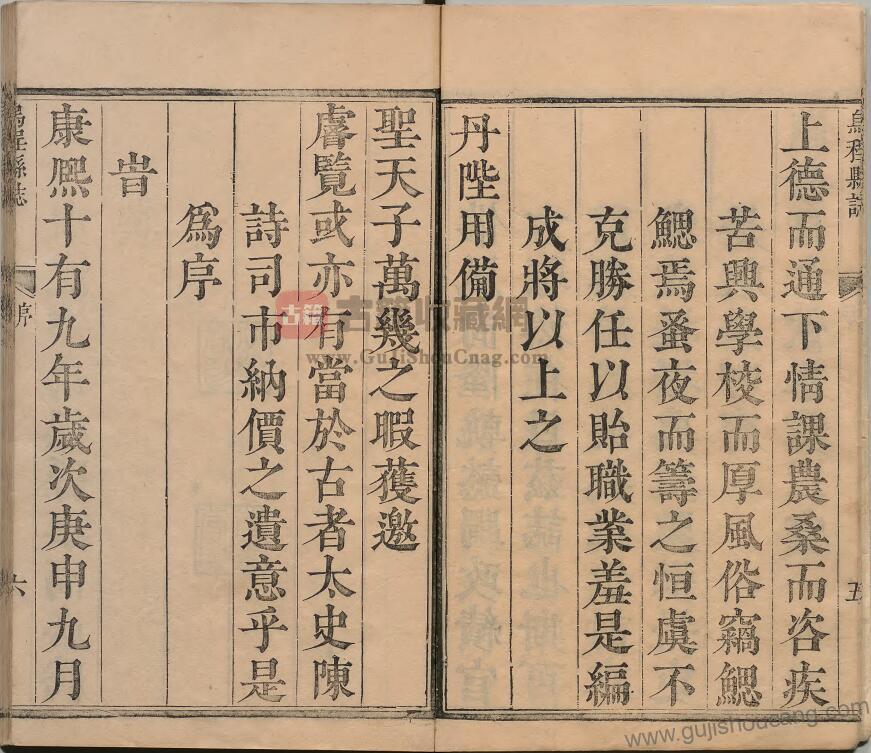 烏程縣誌
五
上德而通下情課農桑而咨疾
苦興學校而厚風俗竊鰓
鰓焉蚤夜而籌之恒虞不
克勝任以貽職業羞是編
成將以上之
丹陛用備
聖天子萬幾之暇獲邀
睿覽或亦有當於古者太史陳
詩司市納價之遺意乎是
為序
旹
康熙十有九年歲次庚申九月
烏程縣誌
序
六
古籍
古籍收藏網
www.GuJiShouCnag.com
www.gujishoucang.com